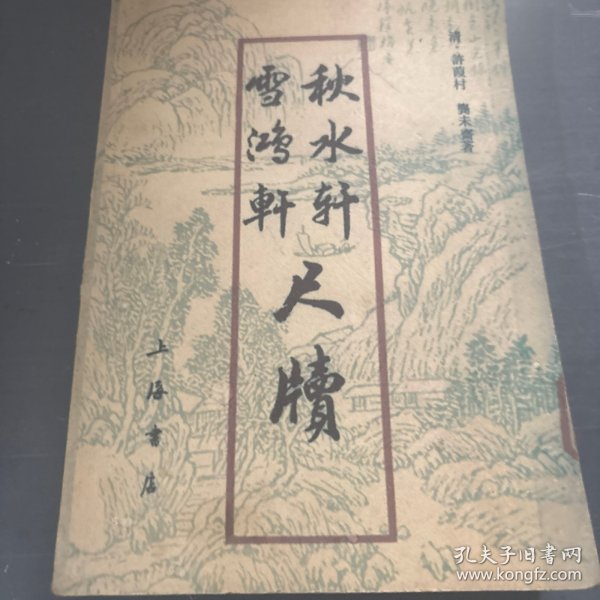 清·許葭村 龔未齋著
秋水轩
雪鴻軒
尺牘
上海書店
孔夫子旧书网
www.kongfz.com